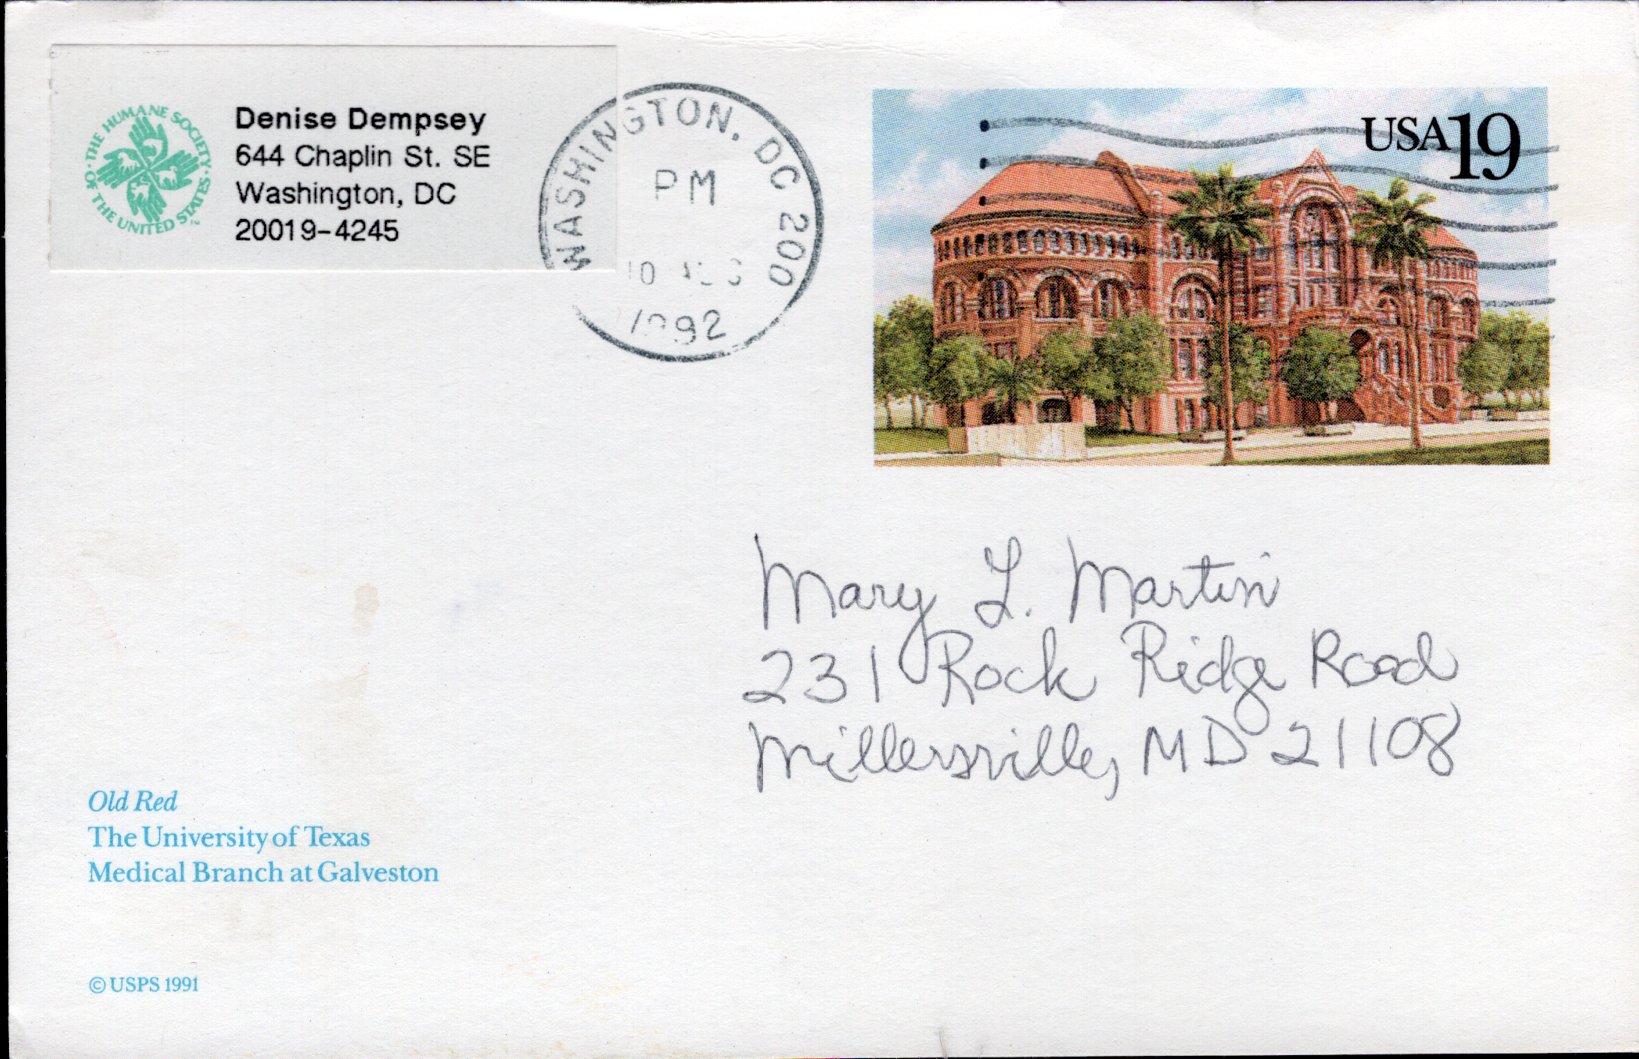 THE HUMANE SOCIETY OF THE UNITED STATES
Denise Dempsey
644 Chaplin St. SE
Washington, DC
20019-4245
WASHINGTON, DC 200
PM
10
1992
USA19
Mary L. Martin
231 Rock Ridge Road
Millersville, MD 21108
Old Red
The University of Texas
Medical Branch at Galveston
© USPS 1991